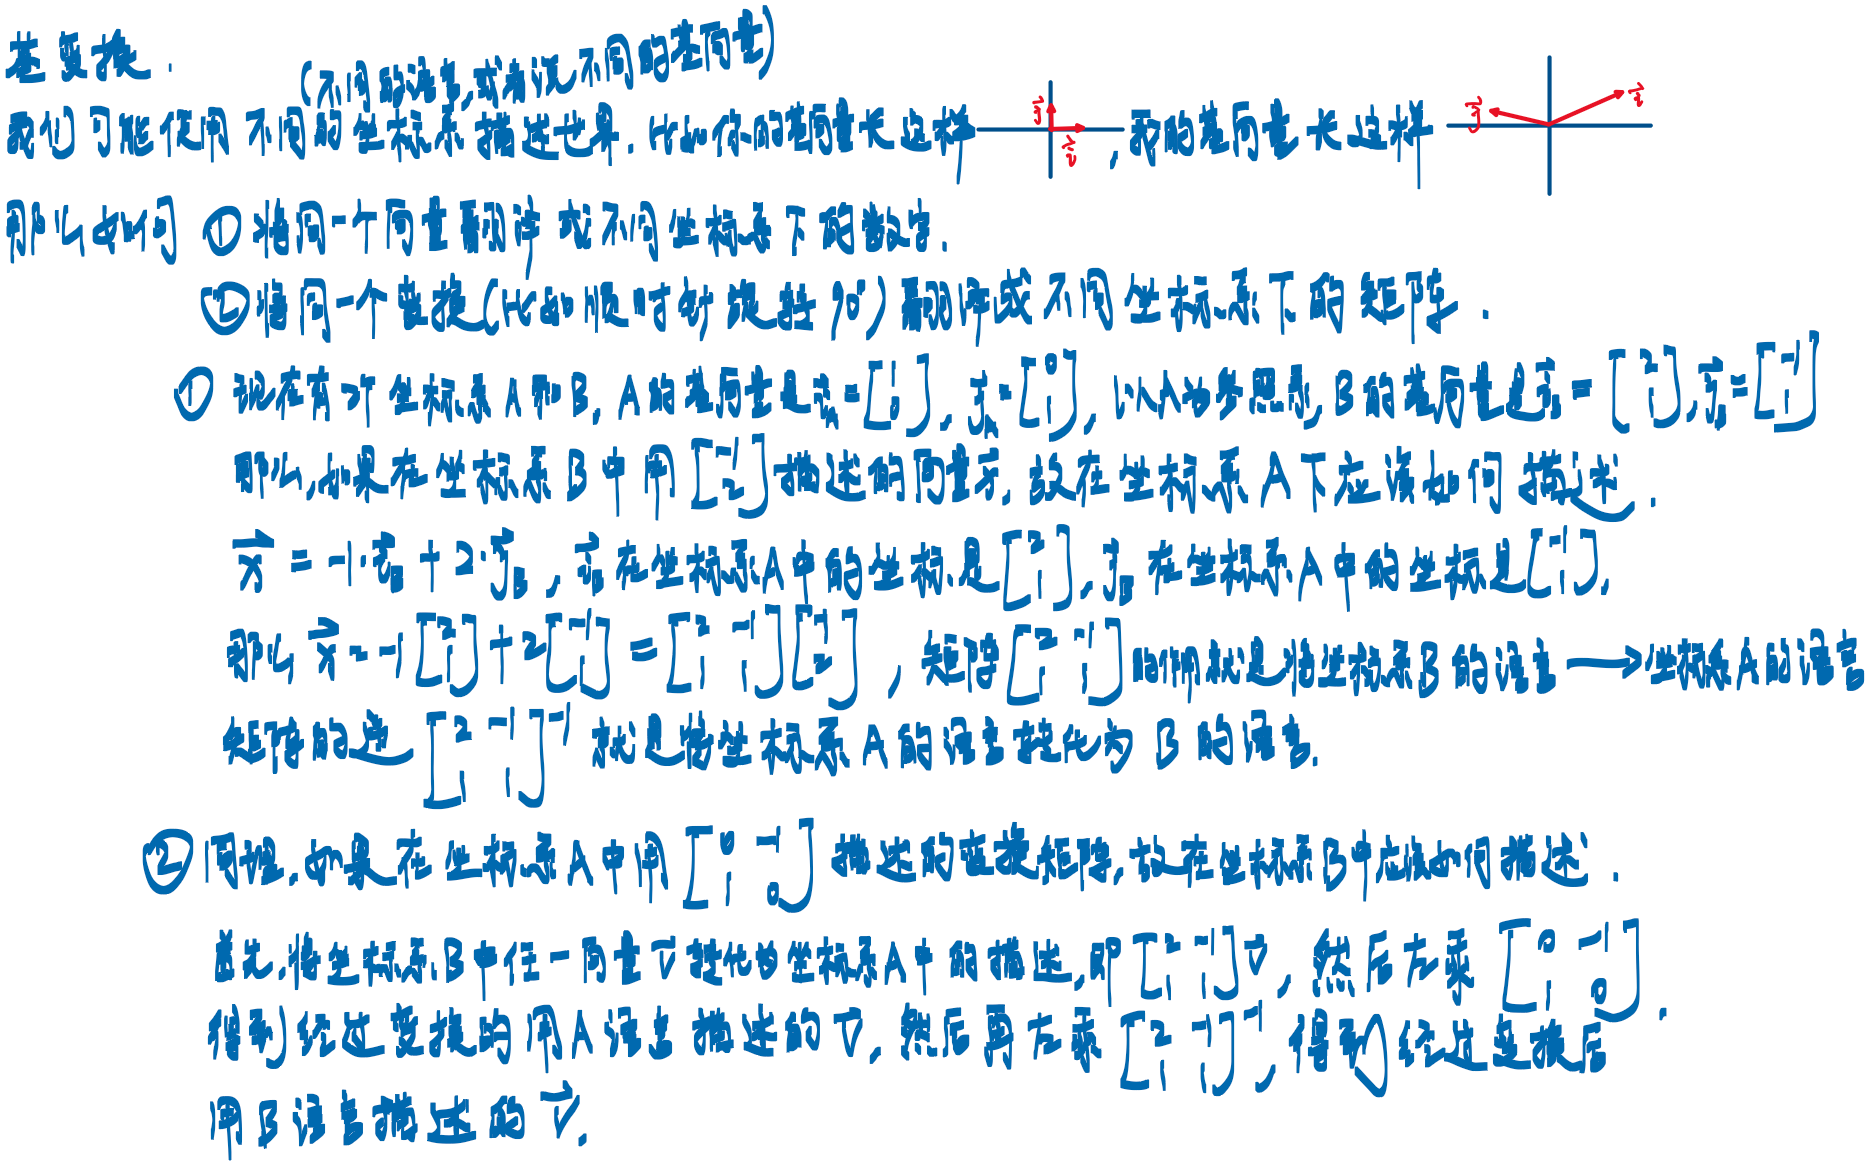 基变换.
(不同的语言,或者说不同的基向量)
我们可能使用不同的坐标系描述世界.比如你的基向量长这样 j i ,我的基向量长这样 j i
那么如何 ①将同一个向量翻译成不同坐标系下的数字.
②将同一个变换(比如顺时针旋转90°)翻译成不同坐标系下的矩阵.
① 现在有2个坐标系A和B, A的基向量是 i⃗_A = [1 0], j⃗_A = [0 1], 以A为参照系,B的基向量是 i⃗_B = [2 1], j⃗_B = [-1 1]
那么,如果在坐标系B中用[-1 2]描述的向量x⃗,故在坐标系A下应该如何描述.
x⃗ = -1·i⃗_B + 2·j⃗_B , i⃗_B在坐标系A中的坐标是[2 1], j⃗_B在坐标系A中的坐标是[-1 1],
那么 x⃗ = -1[2 1] + 2[-1 1] = [2 -1 1 1][-1 2] , 矩阵[2 -1 1 1]的作用就是将坐标系B的语言 → 坐标系A的语言
矩阵的逆[2 -1 1 1]⁻¹ 就是将坐标系A的语言转化为B的语言.
② 同理,如果在坐标系A中用[0 -1 1 0]描述的变换矩阵,故在坐标系B中应该如何描述.
首先,将坐标系B中任一向量v⃗转化为坐标系A中的描述,即[2 -1 1 1]v⃗, 然后左乘[0 -1 1 0].
得到经过变换的用A语言描述的v⃗, 然后再左乘[2 -1 1 1]⁻¹, 得到经过变换后
用B语言描述的v⃗.